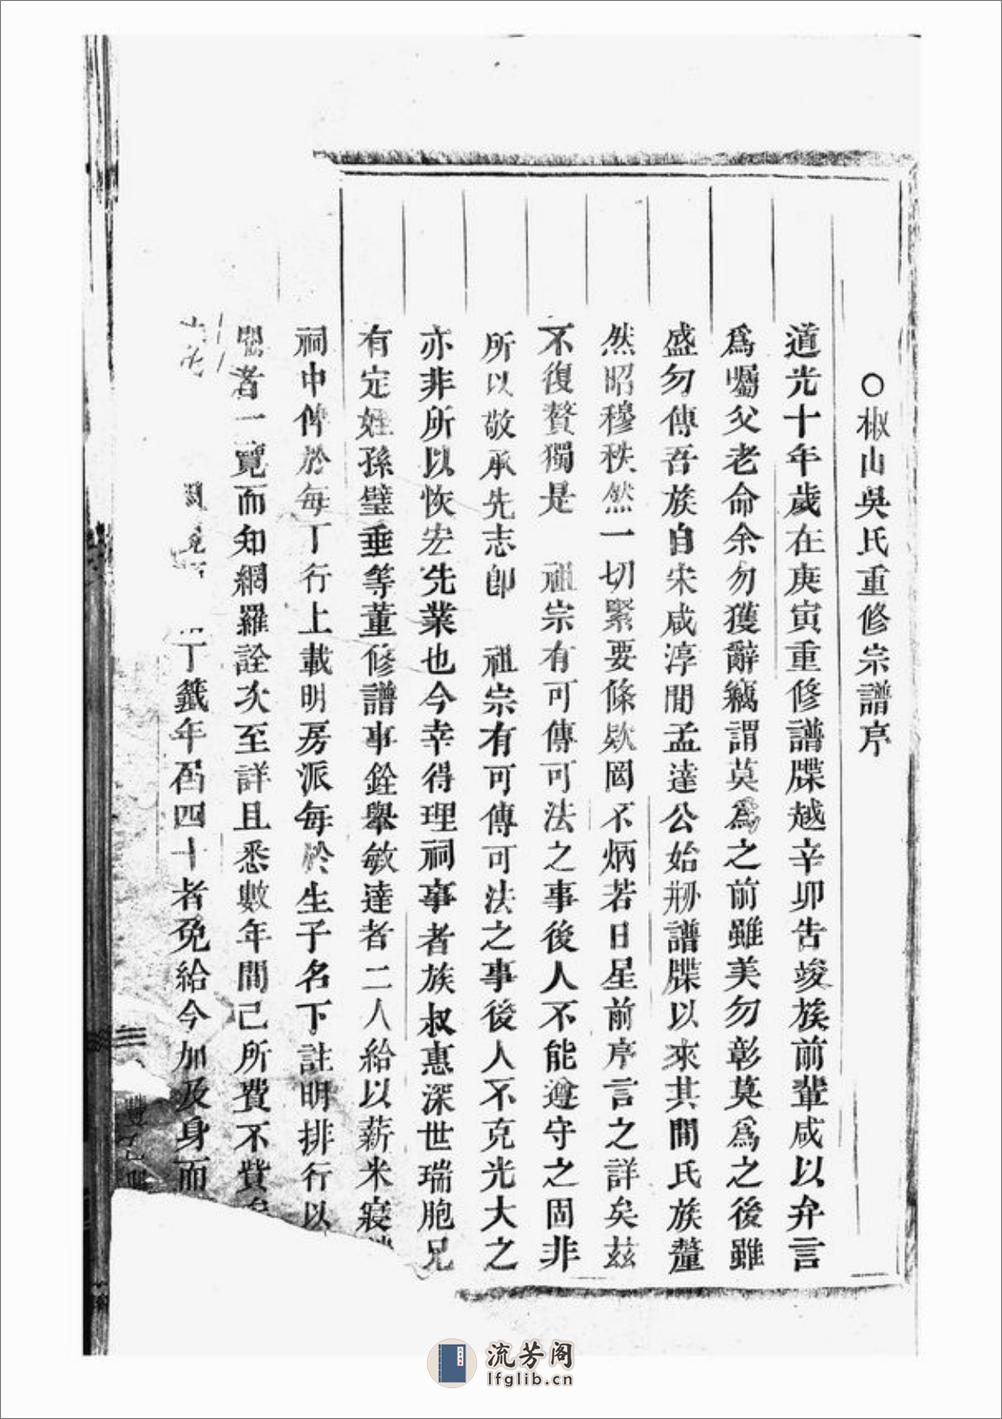 ○椒山吳氏重修宗譜序
道光十年歲在庚寅重修譜牒越辛卯告竣族前輩咸以弁言
爲囑父老命余勿獲辭竊謂莫爲之前雖美勿彰莫爲之後雖
盛勿傳吾族自宋咸淳間孟達公始刱譜牒以來其間氏族釐
然昭穆秩然一切緊要條欵罔不炳若日星前序言之詳矣茲
不復贅獨是　祖宗有可傳可法之事後人不能遵守之固非
所以敬承先志卽　祖宗有可傳可法之事後人不克光大之
亦非所以恢宏先業也今幸得理祠事者族叔惠深世瑞胞兄
有定姪孫璧垂等董修譜事銓舉敏達者二人給以薪米寢
祠中俾於每丁行上載明房派每於生子名下註明排行以
閱者一覽而知網羅詮次至詳且悉數年間己所費不貲
丁籤年屆四十者免給今加及身而
流芳阁
lfglib.cn